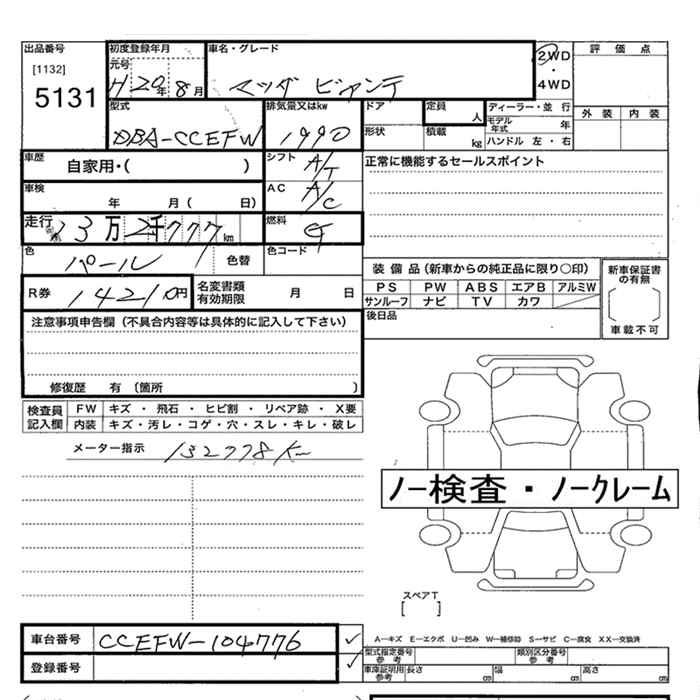 出品番号 初度登録年月 車名・グレード 2WD 評価点
[1132] 元号
5131 H20年8月 マツダ ビアンテ ・ 4WD
型式 排気量又はkw ドア 定員 人 ディーラー・並行 外装 内装
DBA-CCEFW 1990 形状 積載 kg モデル年式 年
ハンドル 左・右
車歴 自家用・( ) シフト A/T 正常に機能するセールスポイント
車検 年 月( 日) AC A/C
走行 13万2千777km 燃料 G
色 パール 色替 色コード
装備品(新車からの純正品に限り○印) 新車保証書の有無
R券 14210円 名変書類有効期限 月 日 PS PW ABS エアB アルミW
サンルーフ ナビ TV カワ
注意事項申告欄(不具合内容等は具体的に記入して下さい) 後日品 車載不可
修復歴 有 (箇所 )
検査員記入欄 FW キズ・飛石・ヒビ割・リペア跡・X要
内装 キズ・汚レ・コゲ・穴・スレ・キレ・破レ
メーター指示 132778K
ノー検査・ノークレーム
スペアT
[ ]
車台番号 CCEFW-104776 A―キズ E―エクボ U―凹み W―補修跡 S―サビ C―腐食 XX―交換済
型式指定番号 参考 類別区分番号 参考
登録番号 車庫証明用 参考 長さ ㎝ 幅 ㎝ 高さ ㎝